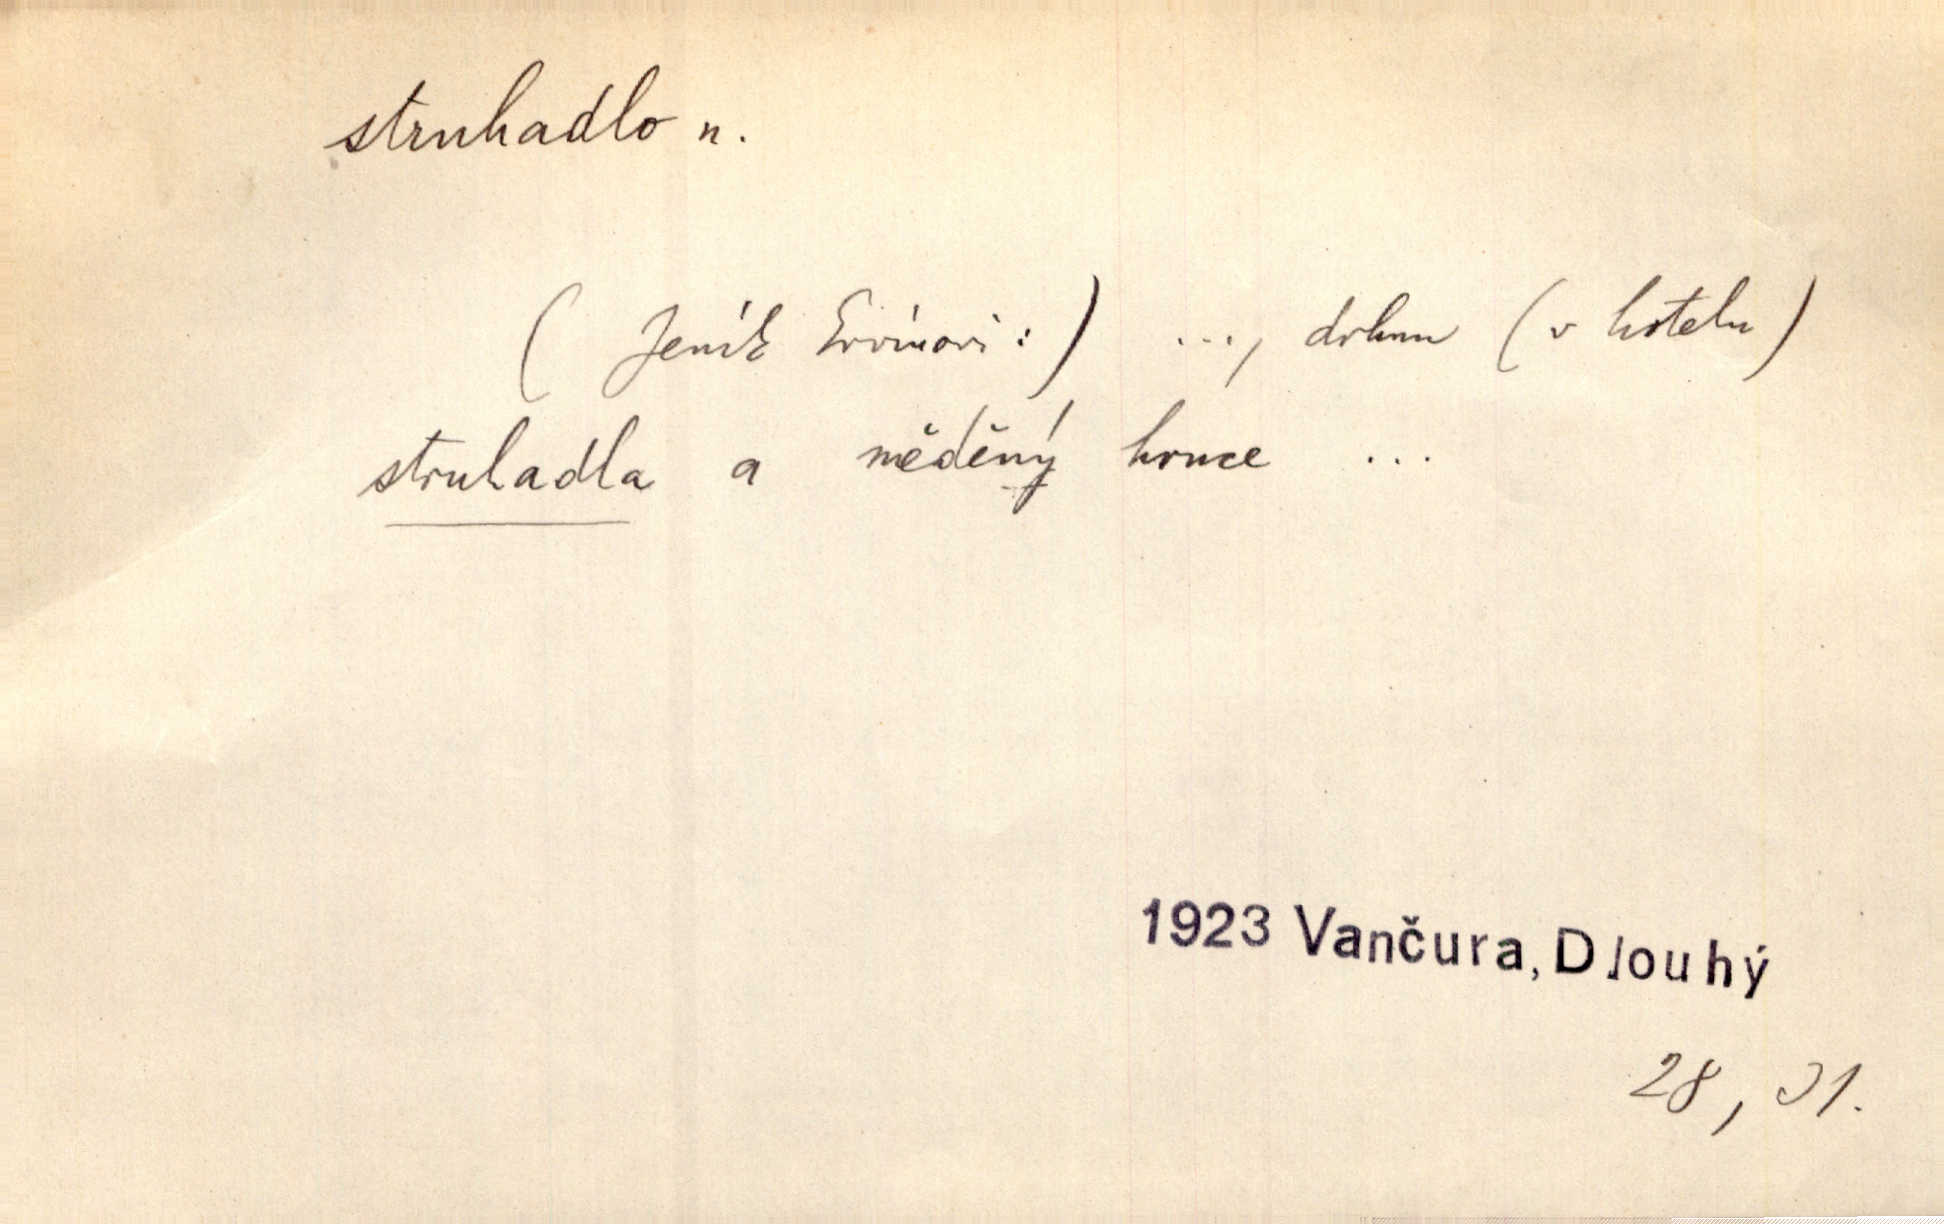 struhadlo n.
( Jeník Ervínovi : ) ..., drhnu ( v hotelu )
struhadla a měděný hrnce ...
1923 Vančura, Dlouhý
28, 31.